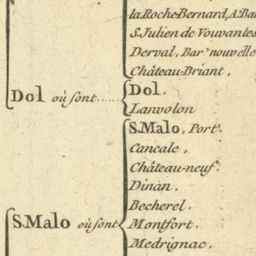 la Roche-Bernard, A. Bar
S. Julien de Vouvantes
Derval, Bar.ᵉ nouvelle
Château-Briant,
Dol où sont......
Dol.
Lanvolon
S. Malo, Port.
Cancale,
Château-neuf.
S. Malo où sont
Dinan,
Becherel.
Montfort.
Medrignac.